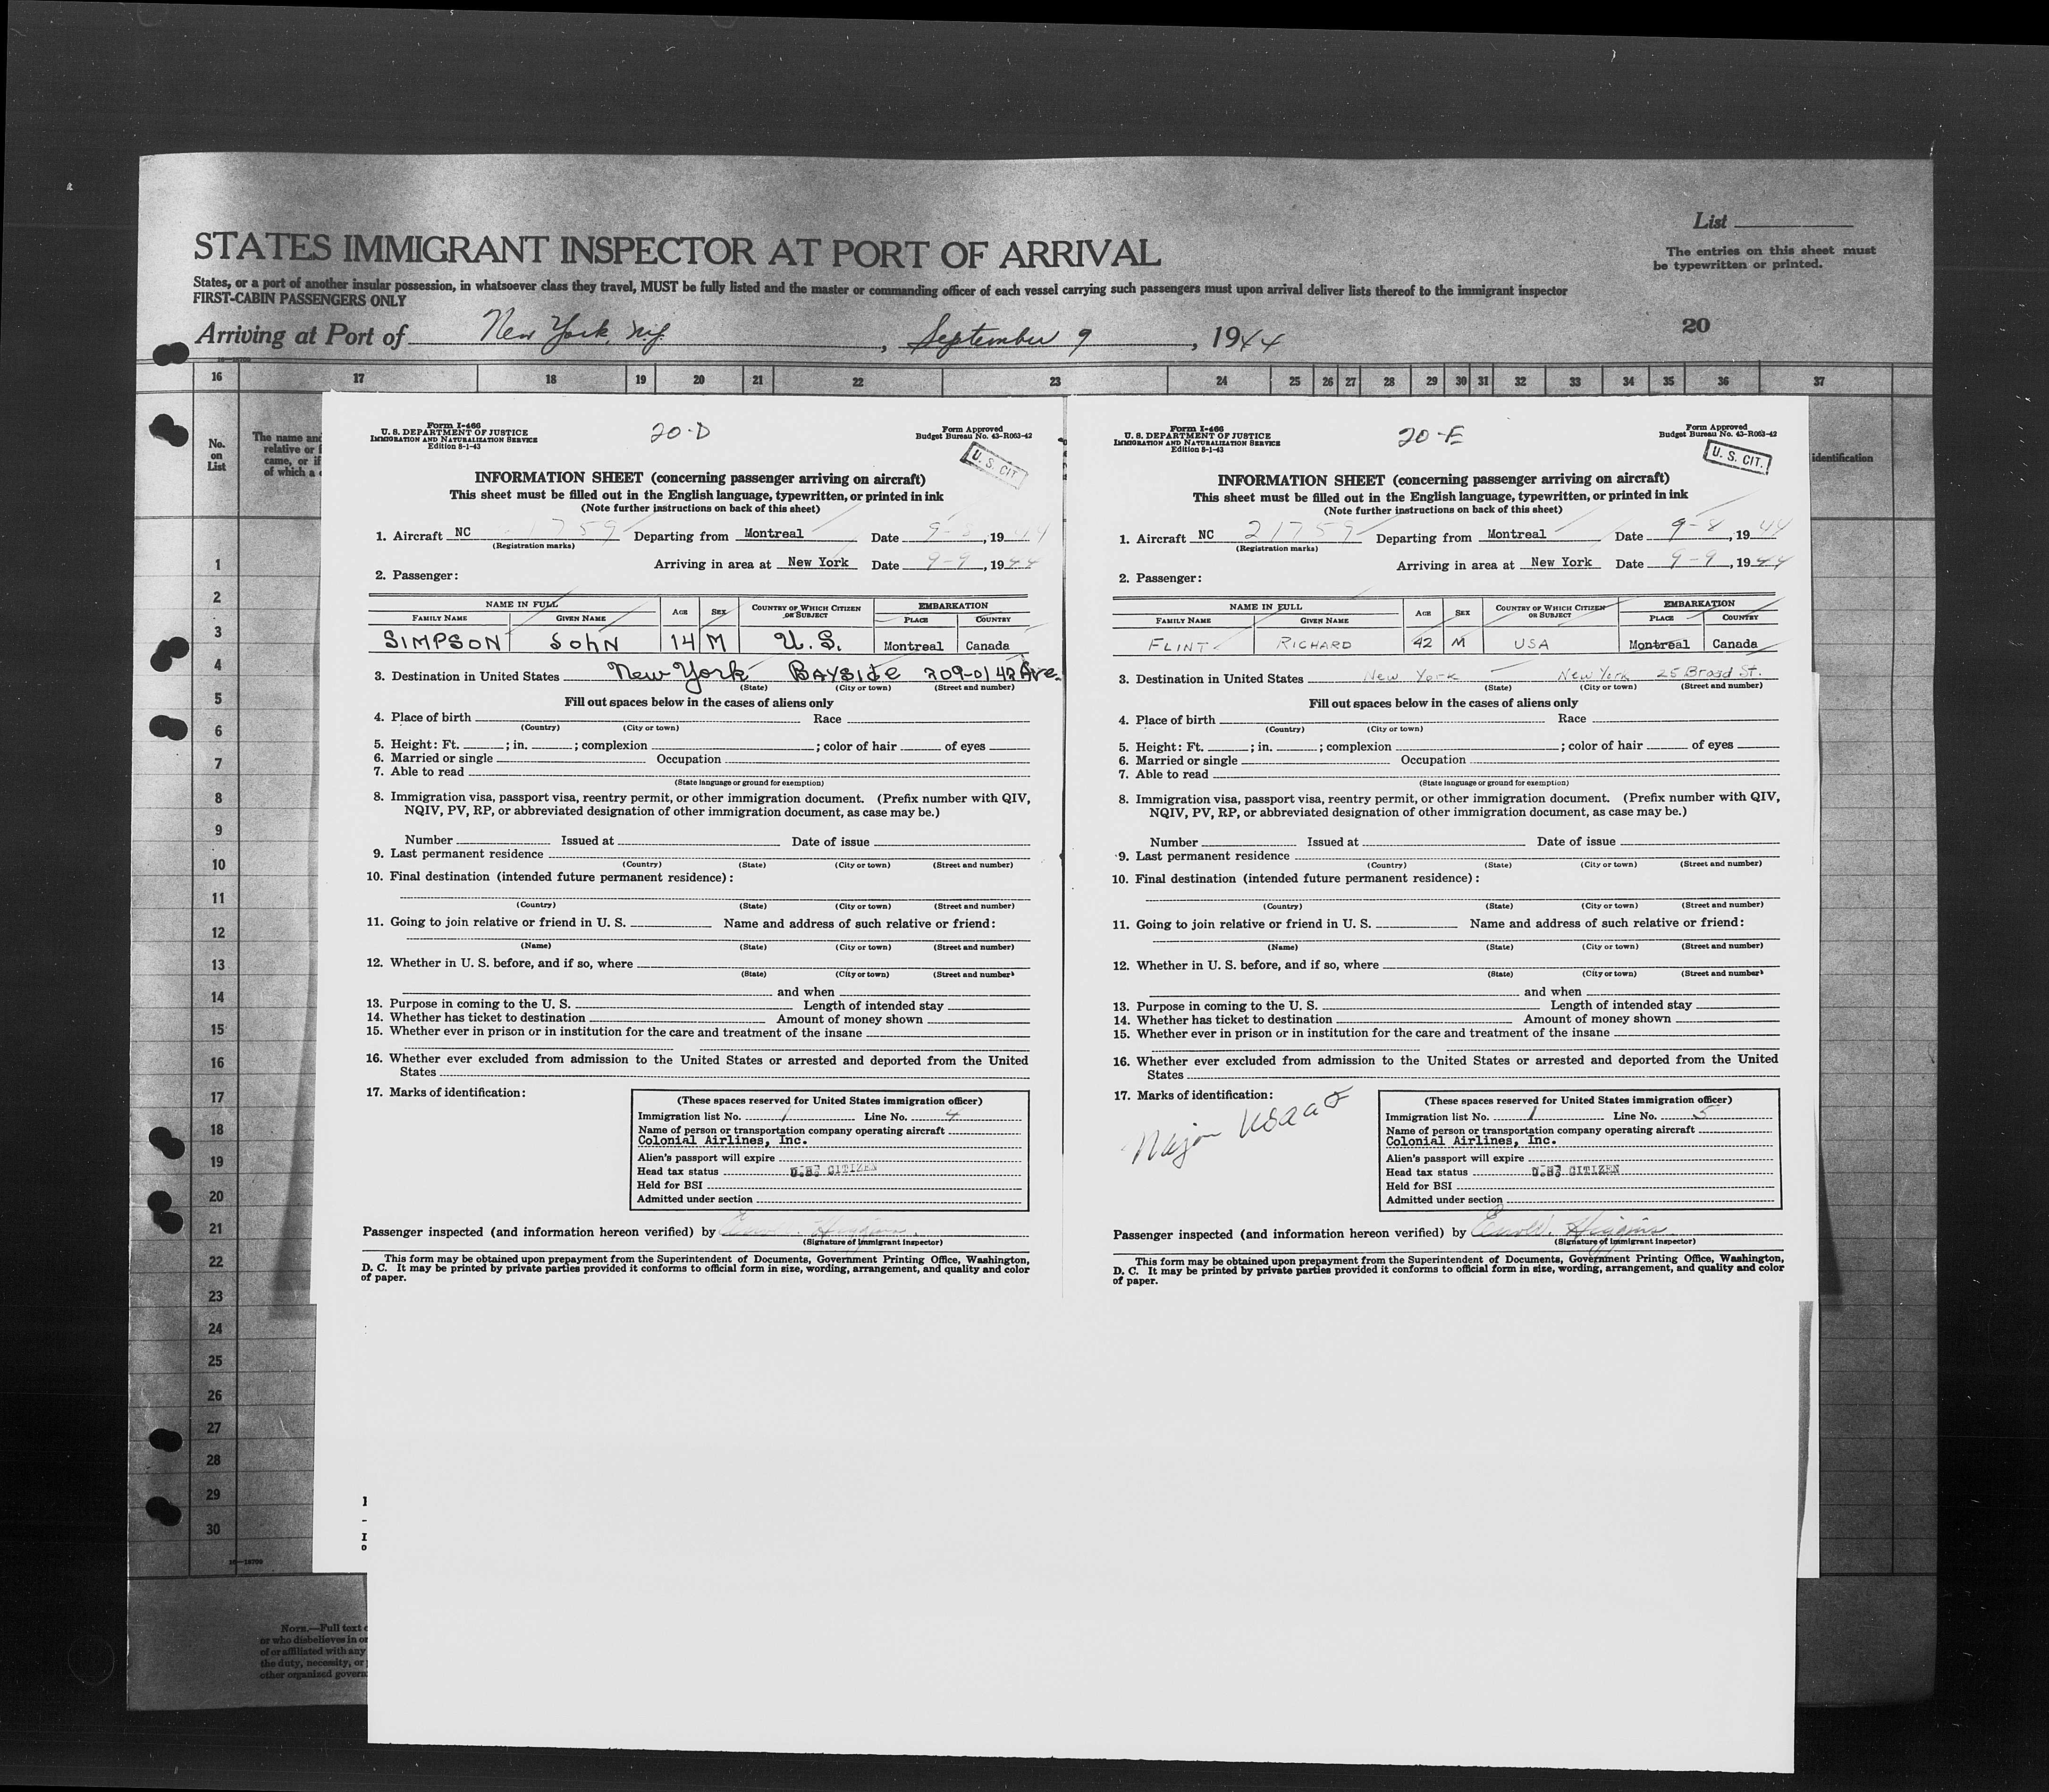 STATES IMMIGRANT INSPECTOR AT PORT OF ARRIVAL
List
The entries on this sheet must
be typewritten or printed.
States, or a port of another insular possession, in whatsoever class they travel, MUST be fully listed and the master or commanding officer of each vessel carrying such passengers must upon arrival deliver lists thereof to the immigrant inspector
FIRST-CABIN PASSENGERS ONLY
Arriving at Port of New York, N.Y. , September 9 , 1944
20
16 17 18 19 20 21 22 23 24 25 26 27 28 29 30 31 32 33 34 35 36 37
No.
on
List
The name and
relative or f
came, or if
of which a c
identification
1
2
3
4
5
6
7
8
9
10
11
12
13
14
15
16
17
18
19
20
21
22
23
24
25
26
27
28
29
30
Form I-466
U. S. DEPARTMENT OF JUSTICE
IMMIGRATION AND NATURALIZATION SERVICE
Edition 8-1-43
20-D
Form Approved
Budget Bureau No. 43-R063-42
U. S. CIT.
INFORMATION SHEET (concerning passenger arriving on aircraft)
This sheet must be filled out in the English language, typewritten, or printed in ink
(Note further instructions on back of this sheet)
1. Aircraft NC 1759 Departing from Montreal Date 9-8, 1944
(Registration marks)
Arriving in area at New York Date 9-9, 1944
2. Passenger:
NAME IN FULL AGE SEX COUNTRY OF WHICH CITIZEN OR SUBJECT EMBARKATION
FAMILY NAME GIVEN NAME PLACE COUNTRY
SIMPSON JOHN 14 M U.S. Montreal Canada
3. Destination in United States New York BAYSIDE 209-01 42 Ave.
(State) (City or town) (Street and number)
Fill out spaces below in the cases of aliens only
4. Place of birth Race
(Country) (City or town)
5. Height: Ft. ; in. ; complexion ; color of hair of eyes
6. Married or single Occupation
7. Able to read
(State language or ground for exemption)
8. Immigration visa, passport visa, reentry permit, or other immigration document. (Prefix number with QIV,
NQIV, PV, RP, or abbreviated designation of other immigration document, as case may be.)
Number Issued at Date of issue
9. Last permanent residence
(Country) (State) (City or town) (Street and number)
10. Final destination (intended future permanent residence):
(Country) (State) (City or town) (Street and number)
11. Going to join relative or friend in U. S. Name and address of such relative or friend:
(Name) (State) (City or town) (Street and number)
12. Whether in U. S. before, and if so, where
(State) (City or town) (Street and number)
and when
13. Purpose in coming to the U. S. Length of intended stay
14. Whether has ticket to destination Amount of money shown
15. Whether ever in prison or in institution for the care and treatment of the insane
16. Whether ever excluded from admission to the United States or arrested and deported from the United
States
17. Marks of identification:
(These spaces reserved for United States immigration officer)
Immigration list No. 1 Line No. 4
Name of person or transportation company operating aircraft
Colonial Airlines, Inc.
Alien's passport will expire
Head tax status U.S. CITIZEN
Held for BSI
Admitted under section
Passenger inspected (and information hereon verified) by Higgins
(Signature of Immigrant Inspector)
This form may be obtained upon prepayment from the Superintendent of Documents, Government Printing Office, Washington,
D. C. It may be printed by private parties provided it conforms to official form in size, wording, arrangement, and quality and color
of paper.
Form I-466
U. S. DEPARTMENT OF JUSTICE
IMMIGRATION AND NATURALIZATION SERVICE
Edition 8-1-43
20-E
Form Approved
Budget Bureau No. 43-R063-42
U. S. CIT.
INFORMATION SHEET (concerning passenger arriving on aircraft)
This sheet must be filled out in the English language, typewritten, or printed in ink
(Note further instructions on back of this sheet)
1. Aircraft NC 21759 Departing from Montreal Date 9-8, 1944
(Registration marks)
Arriving in area at New York Date 9-9, 1944
2. Passenger:
NAME IN FULL AGE SEX COUNTRY OF WHICH CITIZEN OR SUBJECT EMBARKATION
FAMILY NAME GIVEN NAME PLACE COUNTRY
FLINT RICHARD 42 M USA Montreal Canada
3. Destination in United States New York New York 25 Broad St.
(State) (City or town) (Street and number)
Fill out spaces below in the cases of aliens only
4. Place of birth Race
(Country) (City or town)
5. Height: Ft. ; in. ; complexion ; color of hair of eyes
6. Married or single Occupation
7. Able to read
(State language or ground for exemption)
8. Immigration visa, passport visa, reentry permit, or other immigration document. (Prefix number with QIV,
NQIV, PV, RP, or abbreviated designation of other immigration document, as case may be.)
Number Issued at Date of issue
9. Last permanent residence
(Country) (State) (City or town) (Street and number)
10. Final destination (intended future permanent residence):
(Country) (State) (City or town) (Street and number)
11. Going to join relative or friend in U. S. Name and address of such relative or friend:
(Name) (State) (City or town) (Street and number)
12. Whether in U. S. before, and if so, where
(State) (City or town) (Street and number)
and when
13. Purpose in coming to the U. S. Length of intended stay
14. Whether has ticket to destination Amount of money shown
15. Whether ever in prison or in institution for the care and treatment of the insane
16. Whether ever excluded from admission to the United States or arrested and deported from the United
States
17. Marks of identification:
Major USAAF
(These spaces reserved for United States immigration officer)
Immigration list No. 1 Line No. 5
Name of person or transportation company operating aircraft
Colonial Airlines, Inc.
Alien's passport will expire
Head tax status U.S. CITIZEN
Held for BSI
Admitted under section
Passenger inspected (and information hereon verified) by Higgins
(Signature of Immigrant Inspector)
This form may be obtained upon prepayment from the Superintendent of Documents, Government Printing Office, Washington,
D. C. It may be printed by private parties provided it conforms to official form in size, wording, arrangement, and quality and color
of paper.
NOTE.—Full text o
or who disbelieves in or
of or affiliated with any
the duty, necessity, or p
other organized govern